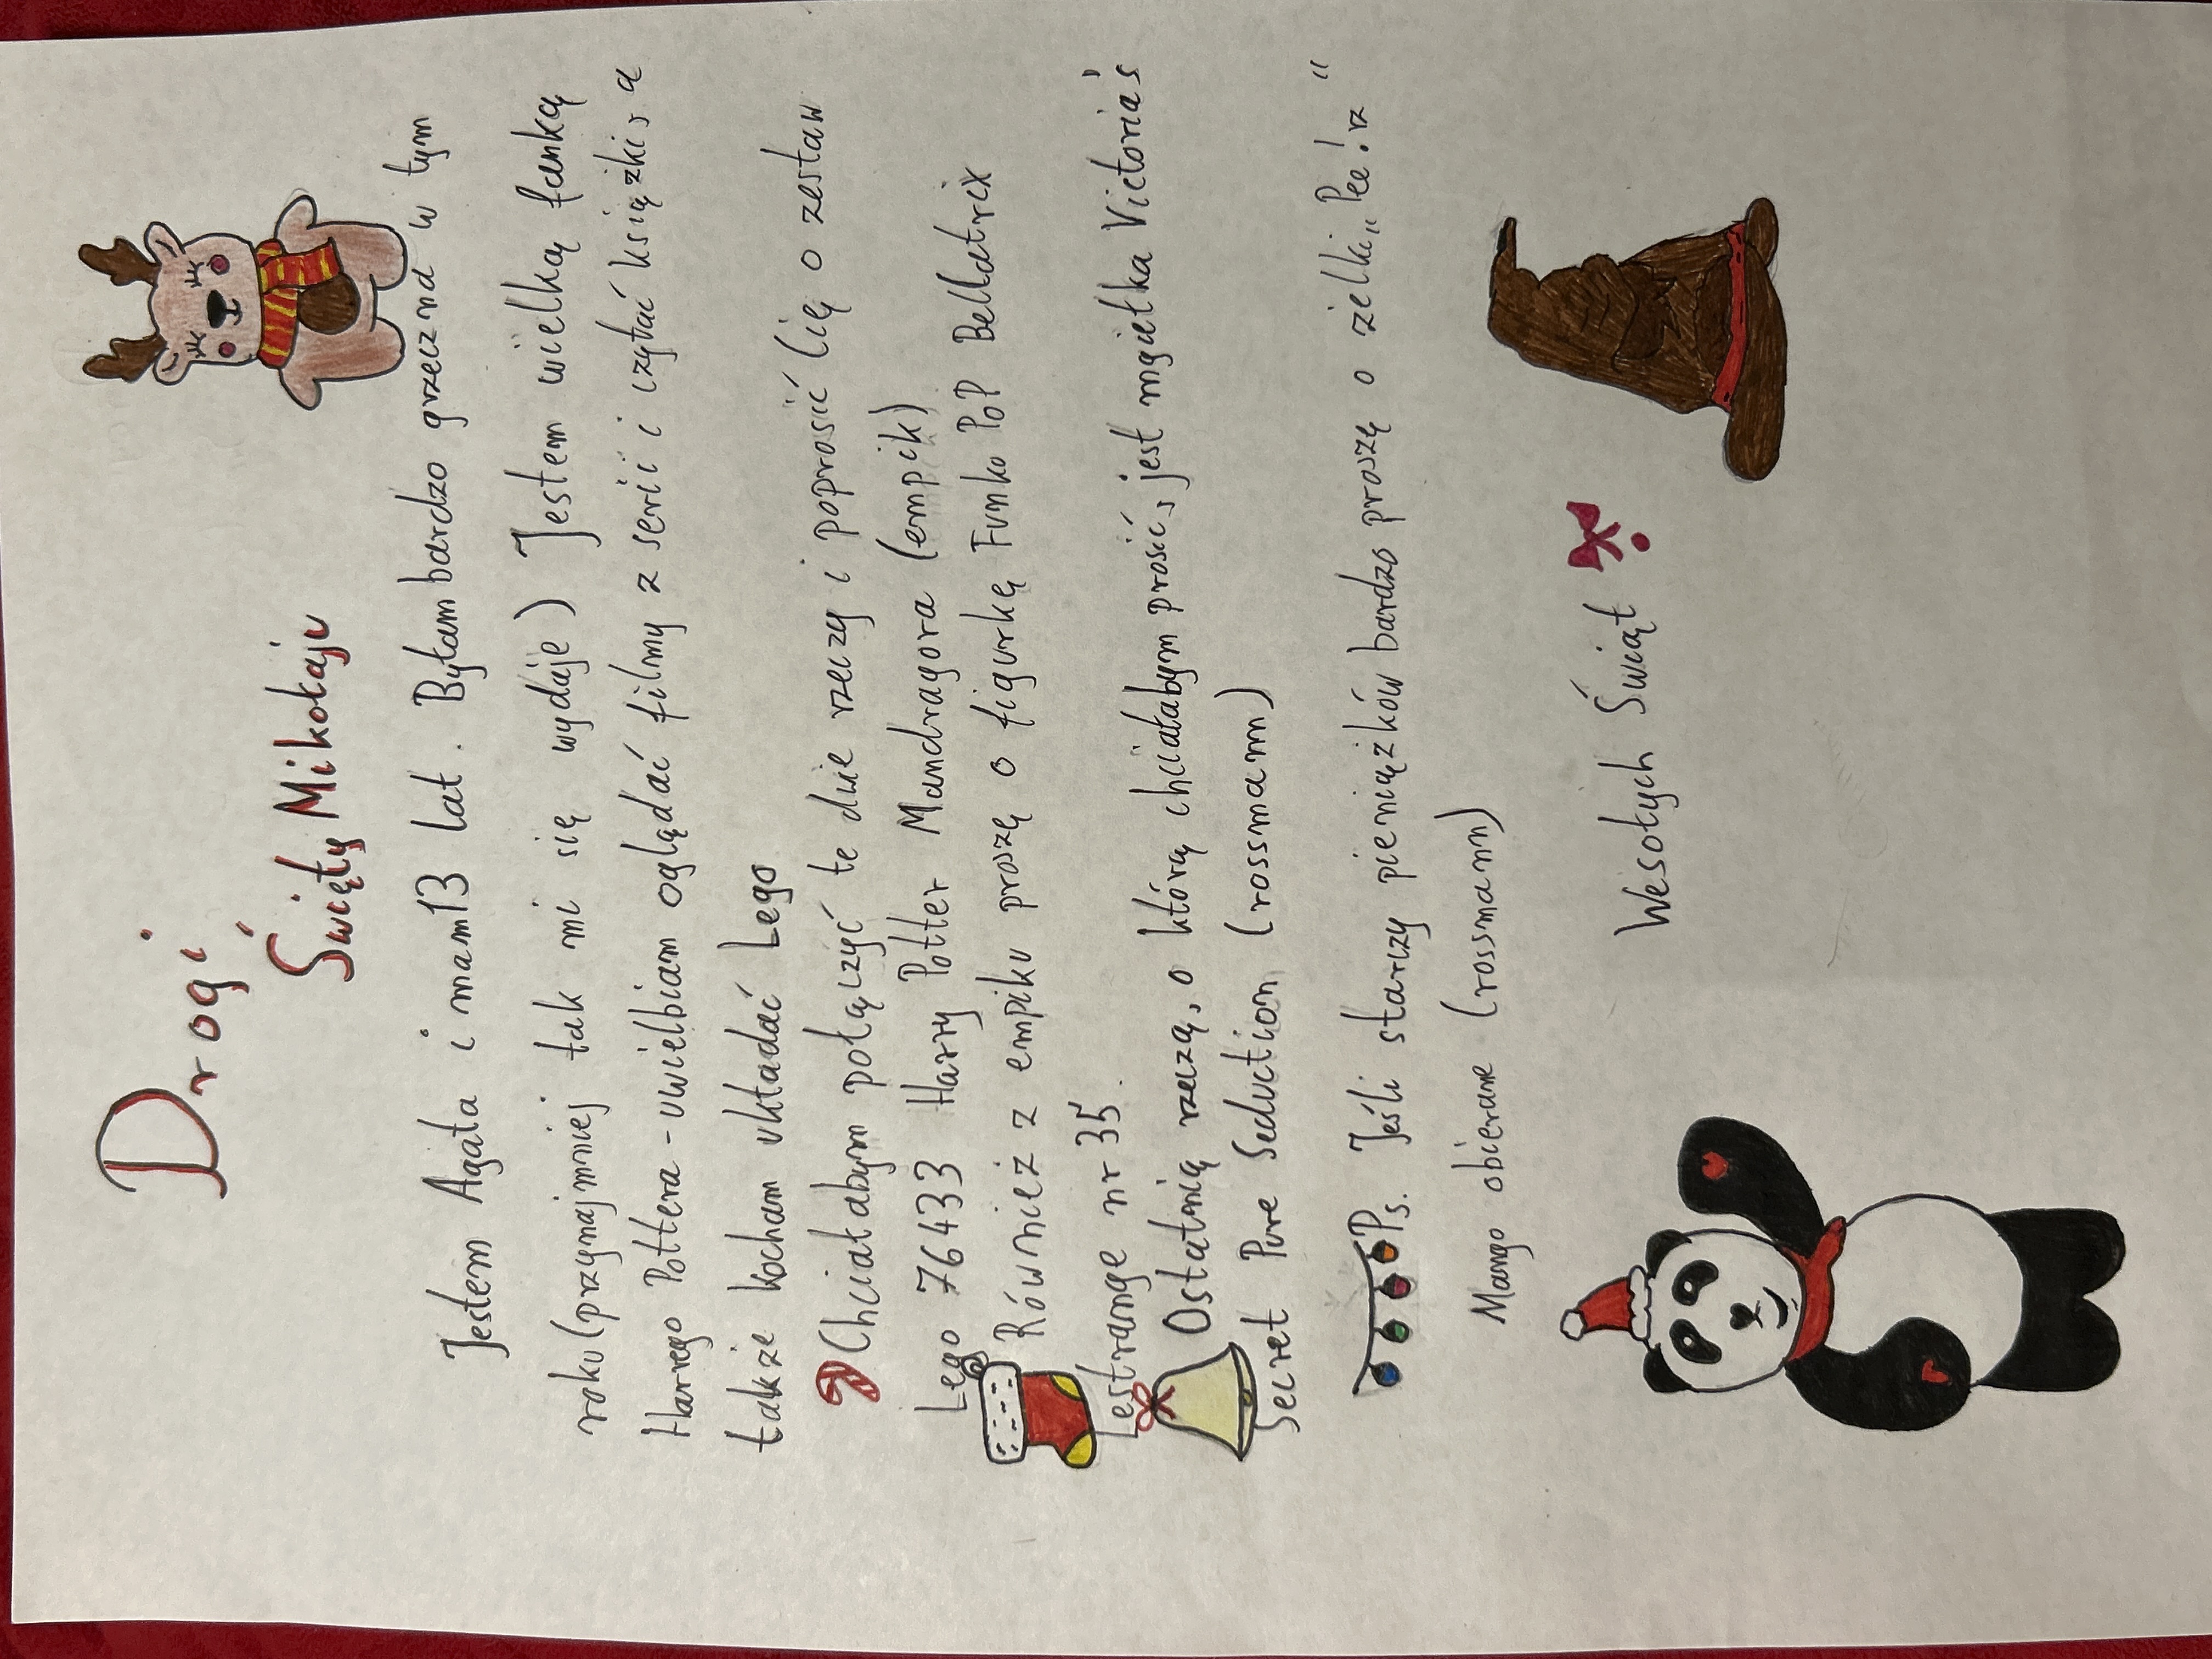 Drogi
Święty Mikołaju
Jestem Agata i mam 13 lat. Byłam bardzo grzeczna w tym
roku (przynajmniej tak mi się wydaje) Jestem wielką fanką
Harrego Pottera - uwielbiam oglądać filmy z serii i czytać książki, a
także kocham układać Lego
Chciałabym połączyć te dwie rzeczy i poprosić Cię o zestaw
Lego 76433 Harry Potter Mandragora (empik)
Również z empiku proszę o figurkę Funko PoP Bellatrix
Lestrange nr 35.
Ostatnią rzeczą, o którą chciałabym prosić, jest mgiełka Victoria's
Secret Pure Seduction (rossmann)
Ps. Jeśli starczy pieniążków bardzo proszę o żelki „Pee!rz"
Mango obierane (rossmann)
Wesołych Świąt